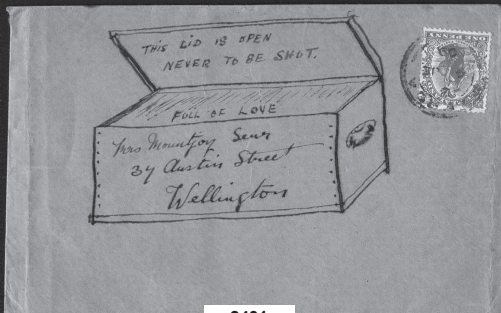 THIS LID IS OPEN
NEVER TO BE SHUT.
FULL OF LOVE
Mrs Mountjoy Senr
37 Austin Street
Wellington
ONE PENNY